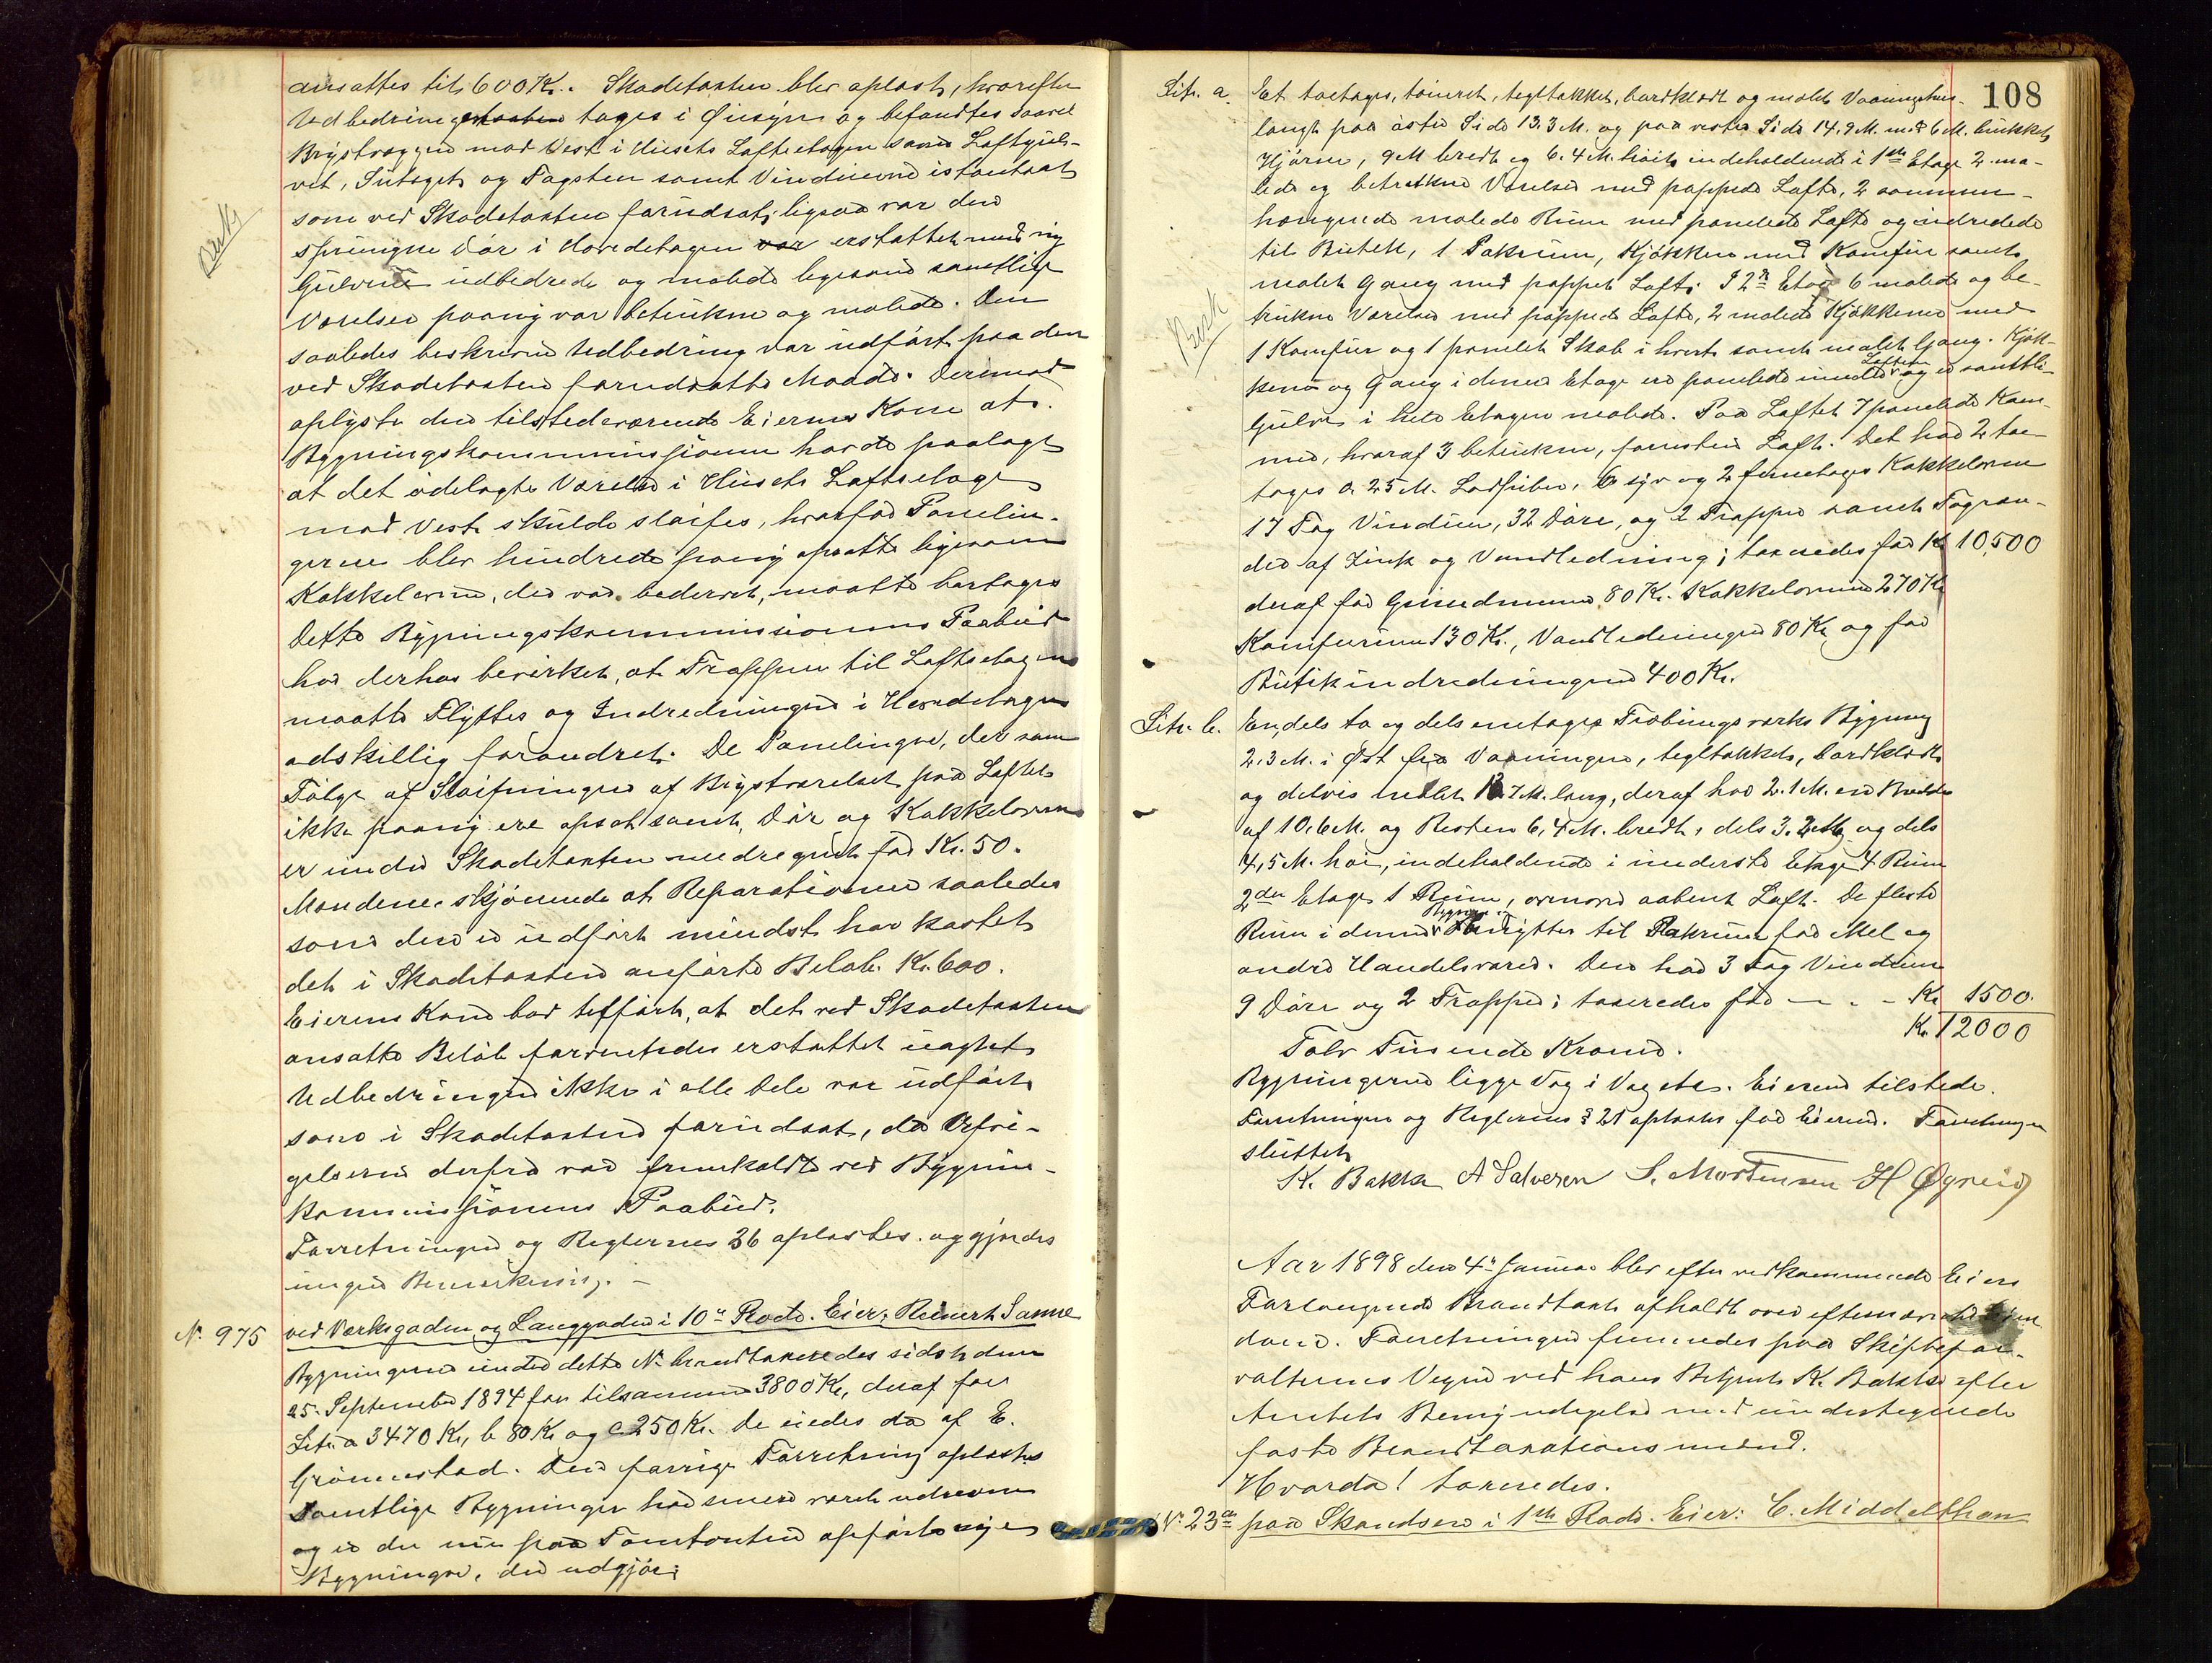 ansattes til 600 Kr. Skadetaxten blev oplæst, hvorefter
Udbedringerne toges i Øiesyn og befandtes saavel
Brystvæggen mod Vest i Husets Loftsetage som Loftgul-
vet, Sutaget og Tagsten samt Vinduerne istandsat
som ved Skadetaxten forudsat; ligesaa var den
sprungne Dör i Hovedetagen erstattet med ny
Gulvene udbedrede og malede ligesom samtlige
Værelser paany var betrukne og malede. Den
saaledes beskrevne Udbedring var udfört paa den
ved Skadetaxten forudsatte Maade. Derimod
oplyste den tilstedeværende Eierens Kone at
Bygningskommissionen havde paalagt
at det ödelagte Værelse i Husets Loftsetage
mod Vest skulde slöifes, hvorfor Panelin-
gerne blev hindrede paany opsatte ligesom
Kakkelovnen, der var bedervet, maatte borttages
Dette Bygningskommissionens Paabud
har derhos bevirket, at Trappen til Loftsetagen
maatte Flyttes og Indredningen i Hovedetagen
adskillig forandret. De Panelinger, der som
Fölge af Slöifningen af Brystværelset paa Loftet
ikke paany ere opsat samt Dör og Kakkelovn
er under Skadetaxten medregnet for Kr. 50.
Mændene skjönnede at Reparationen saaledes
som den er udfört mindst har kostet
det i Skadetaxten anförte Belöb Kr. 600.
Eierens Kone bad tilfört, at det ved Skadetaxten
ansatte Belöb forventedes erstattet uagtet
Udbedringen ikke i alle Dele var udfört
som i Skadetaxten forudsat, da Afvi-
gelserne derfra var fremkaldt ved Bygnings-
kommissionens Paabud.
Forretningen og Reglernes 36 oplæstes og gjordes
ingen Bemærkning. —
No. 975 ved Værksgaden og Langgaden i 10de Rode. Eier, Reinert Sanne
Bygningerne under dette No brandtaxeredes sidst den
25. September 1894 for tilsammen 3800 Kr, deraf for
Litr. a 3470 Kr, b 80 Kr og c 250 Kr. De eiedes da af E.
Grönnestad. Den forrige Forretning oplæstes
Samtlige Bygninger har senere været nedrevne
og er der nu paa Tomten opförte nye
Bygninger, der udgjör:
108
Litr. a. Et toetages, töiret, tegltækket, bordklædt og malet Vaaningshus.
langt paa östre Side 13.3 M. og paa vestre Side 14.9 M. med 6 M. brukket
Hjörne, 9 M bredt og 6.4 M. höit, indeholdende i 1ste Etage 2 ma-
lede og betrukne Værelser med pappede Lofte, 2 sammen-
hængende malede Rum med panelede Lofte og indredede
til Butik, 1 Pakrum, Kjökken med Komfur samt
malet Gang med pappet Loft. I 2den Etage 6 malede og be-
trukne Værelser med pappede Lofte, 2 malede Kjökkener med
1 Komfur og 1 panelet Skab i hvert samt malet Gang. Kjök-
kener og Gang i denne Etage ere panelede under Loftene og er samtli-
Gulve i hele Etagen malede. Paa Loftet 7 panelede Kam-
mer, hvoraf 3 betrukne, forresten Loft. Det har 2 toe-
tages a 25 M. Lodpiber, 6 syv og 2 femetages Kakkelovne
17 Fag Vinduer, 32 Döre, og 2 Trapper samt Tagren-
der af Zink og Vandledning; taxeredes for Kr 10,500
deraf for Grundmuren 80 Kr. Kakkelovnene 270 Kr
Komfurene 130 Kr., Vandledningen 80 Kr og for
Butikindredningen 400 Kr.
Litr. b. En, dels to og dels enetages Träbindingsværks Bygning
2,3 M. i Öst fra Vaaningen, tegltækket, bordklædt
og delvis malet, 7 M. lang, deraf har 2.1 M. en Bredde
af 10,6 M. og Resten 6,4 M. bredt, dels 3. og dels
4,5 M. höi, indeholdende i underste Etage 4 Rum
2den Etage 1 Rum, ovenover aabent Loft. De fleste
Rum i denne Bygning benyttes til Pakrum for Mel og
andre Handelsvarer. Den har 3 Fag Vinduer
9 Döre og 2 Trapper; taxeredes for — - - Kr 1500.
Kr. 12000
Tolv Tusinde Kroner.
Bygningerne ligge Væg i Væg etc. Eieren tilstede.
Forretningen og Reglernes § 21 oplæstes for Eieren. Forretningen
sluttet
K. Bakka A Salvesen S. Mortensen H Øgreid
Aar 1898 den 4de Januar blev efter vedkommende Eiers
Forlangende Brandtaxt afholdt over efternævnte Eien
domme. Forretningen fremmedes paa Skiftefor-
valterens Vegne ved hans Betjent K. Bakka efter
Amtets Bemyndigelse med undertegnede
faste Brandtaxationsmænd.
Hvorda! taxeredes.
No. 23a paa Skandsen i 1ste Rode. Eier: C. Middelthon